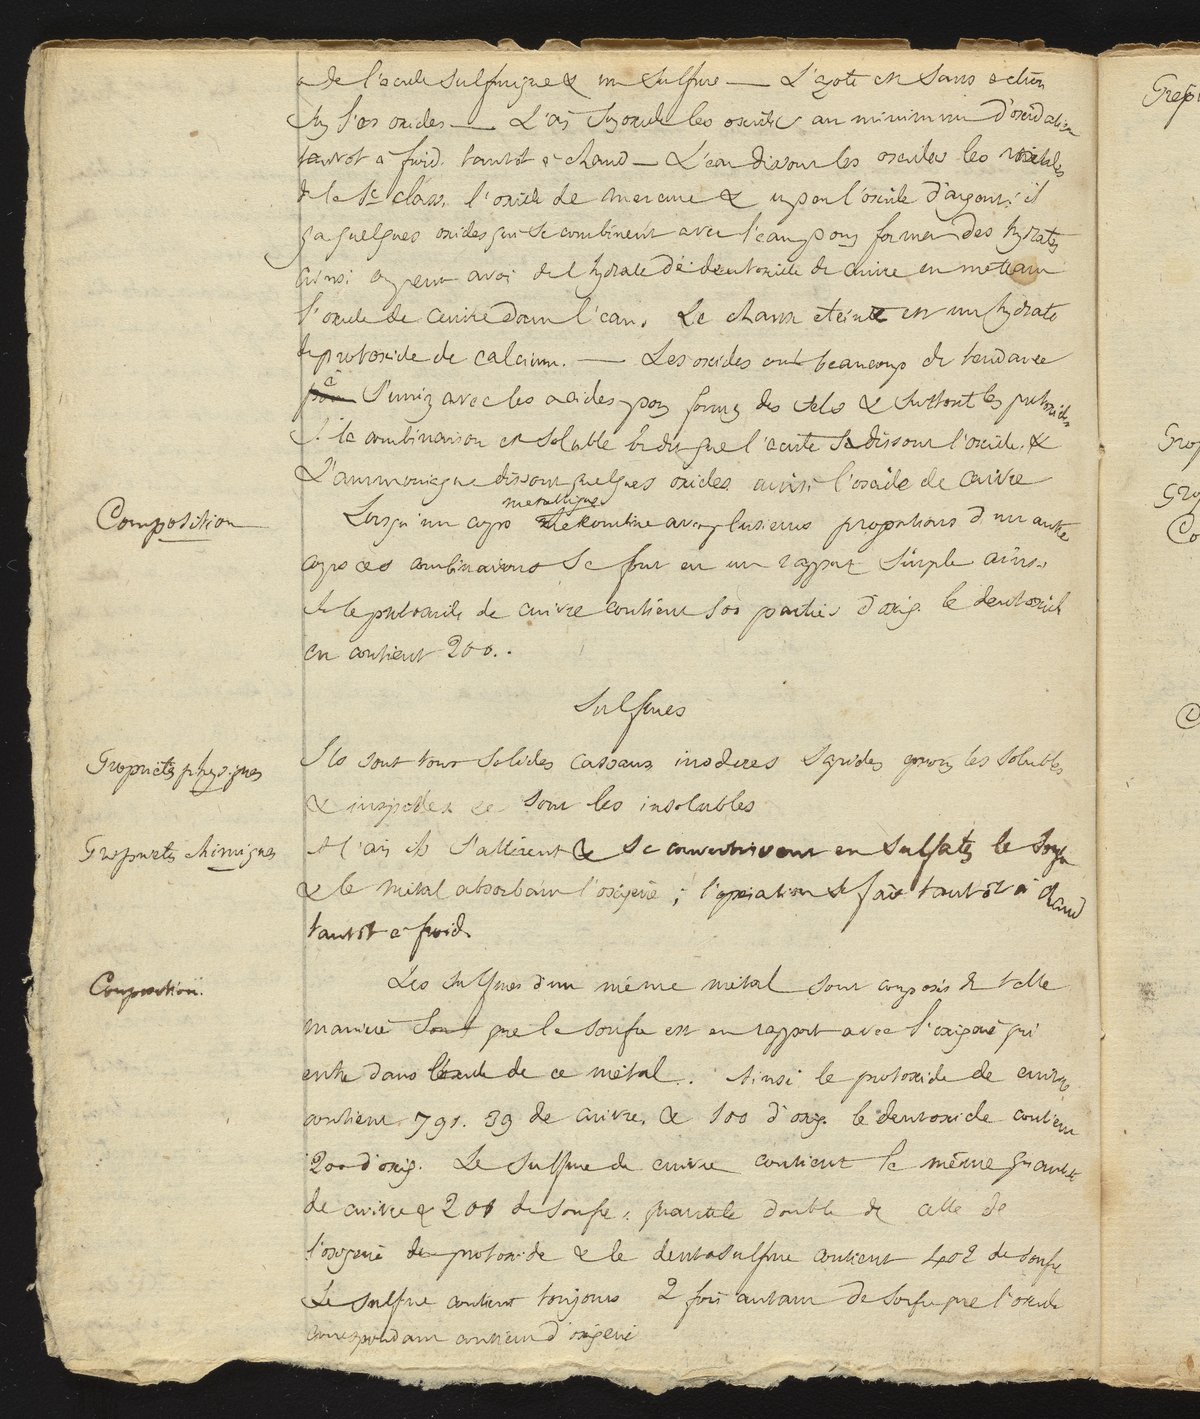 a de l'acide sulfurique & un sulfure — L'azote est sans action
sur les oxides — L'air suroxide les oxides au minimum d'oxidation
tantot a froid. tantôt a chaud — L'eau dissout les oxides les métales
de la 1e class. l'oxide de mercure & un peu l'oxide d'argent. il
y a quelques oxides qui se combinent avec l'eau pour former des hydrates
ainsi on peut avoir de l'hydrate de deutoxide de cuivre en mettant
l'oxide de cuivre dans l'eau. La chaux eteinte est un hydrate
de protoxide de calcium. — Les oxides ont beaucoup de tendance
a s'unir avec les acides pour former des sels & surtout les protoxides
si la combinaison est soluble on dit que l'acide dissout l'oxide. &
L'ammoniaque dissout quelques oxides ainsi l'oxide de cuivre
Composition
Lorsqu'un corps métallique se combine avec plusieurs proportions d'un autre
corps ces combinaisons se font en un rapport simple ainsi
si le protoxide de cuivre contient 100 parties d'oxig. le deutoxide
en contient 200..
Sulfures
Propriétés physiques
Ils sont tous solides cassans inodores sapides quand les solubles
& insipides ce sont les insolubles
Propriétés chimiques
A l'air ils s'altèrent & se convertissent en sulfates le soufre
& le métal absorbant l'oxigène ; l'opération se fait tantôt à chaud
tantôt a froid.
Composition.
Les sulfures d'un même métal sont composés de telle
manière que le soufre est en rapport avec l'oxigène qui
entre dans l'oxide de ce métal. Ainsi le protoxide de cuivre
contient 791. 39 de cuivre. & 100 d'oxig. le deutoxide contient
200 d'oxig. Le sulfure de cuivre contient la même quantité
de cuivre & 201 de soufre, quantité double de celle de
l'oxigène de protoxide & le deutosulfure contient 402 de soufre
Le sulfure contient toujours 2 fois autant de soufre que l'oxide
correspondant contient d'oxigène